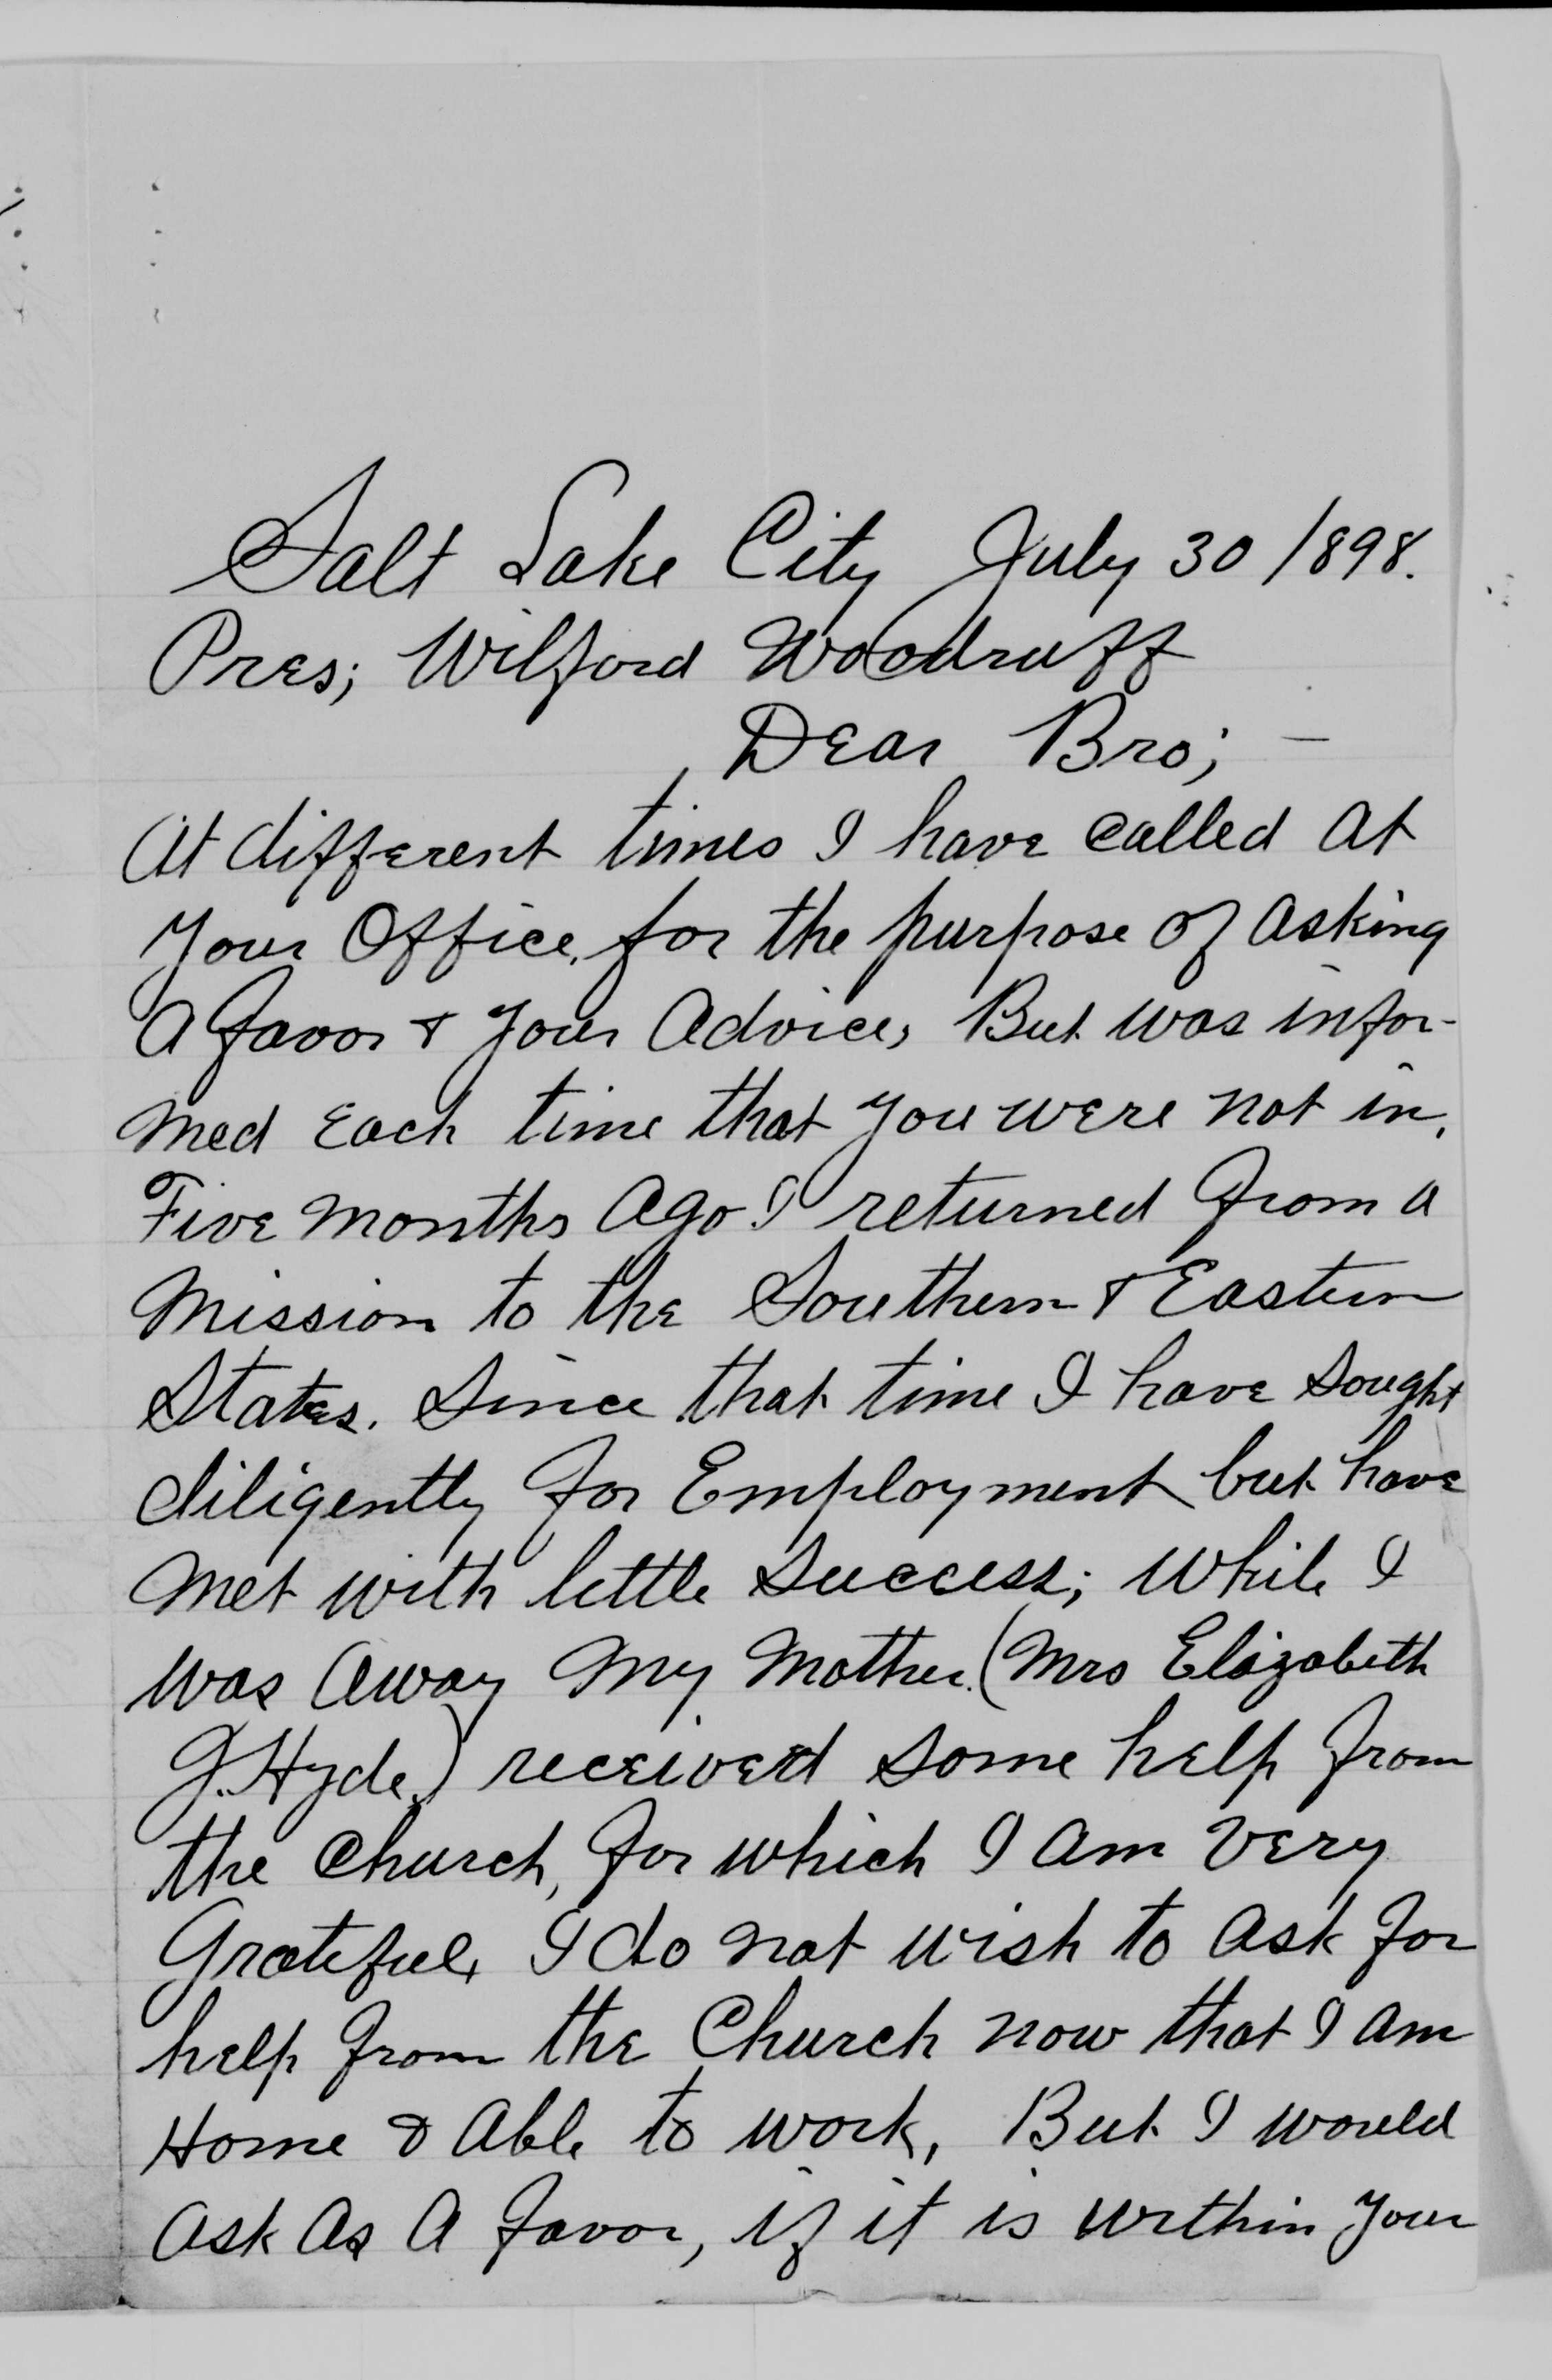 Salt Lake City July 30/1898.
Pres; Wilford Woodruff
Dear Bro; —
At different times I have called at
Your Office, for the purpose of asking
a favor & Your Advice, But was infor-
med Each time that you were not in.
Five months ago I returned from a
Mission to the Southern & Eastern
States. Since that time I have sought
diligently for Employment but have
Met with little success; While I
was away My Mother. (Mrs Elizabeth
G. Hyde.) received some help from
the Church, for which I am very
Grateful, I do not wish to ask for
help from the Church now that I am
Home & Able to work, But I would
Ask As A favor, if it is within Your